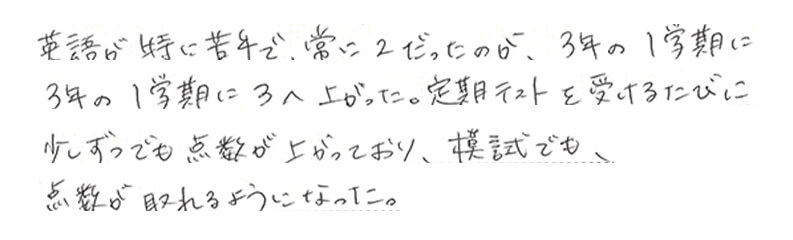 英語が特に苦手で、常に2だったのが、3年の1学期に
3年の1学期に3へ上がった。定期テストを受けるたびに
少しずつでも点数が上がっており、模試でも、
点数が取れるようになった。